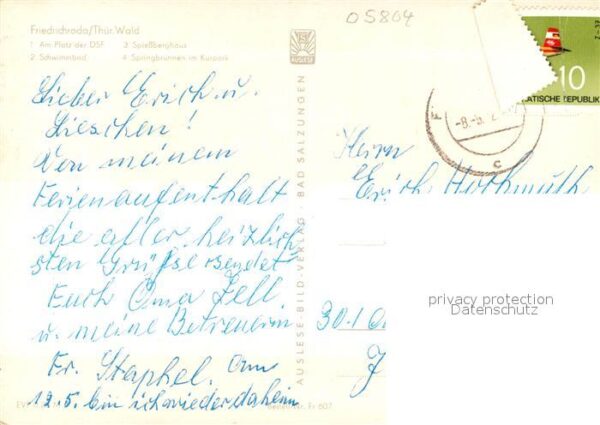 05804
Friedrichroda/Thür. Wald
1 Am Platz der DSF 3 Spießberghaus
2 Schwimmbad 4 Springbrunnen im Kurpark
AUSLESE
10
ATISCHE REPUBLIK
-8.-5.
c
Lieber Erich u.
Lieschen!
Von meinem
Ferienaufenthalt
die aller herzlich
sten Grüße sendet
Euch Oma Zell
u. meine Betreuerin
Fr. Staphel. Am
12.5. bin ich wieder daheim
AUSLESE-BILD-VERLAG · BAD SALZUNGEN
Herrn
Erich Hothmuth
301
privacy protection
Datenschutz
Bestell-Nr. Fr 607